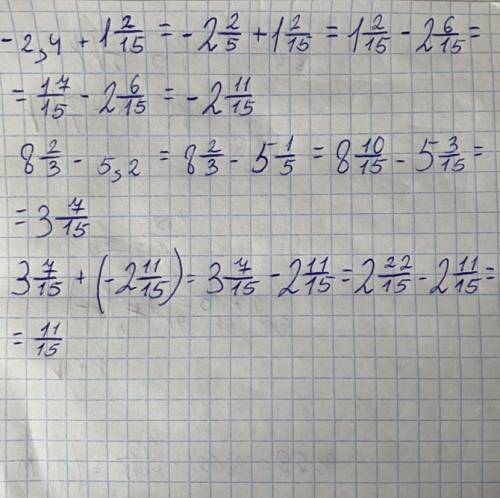 -2,4 + 1 2/15 = -2 2/5 + 1 2/15 = 1 2/15 - 2 6/15 =
= 17/15 - 2 6/15 = -2 11/15
8 2/3 - 5,2 = 8 2/3 - 5 1/5 = 8 10/15 - 5 3/15 =
= 3 7/15
3 7/15 + (-2 11/15) = 3 7/15 - 2 11/15 = 2 22/15 - 2 11/15 =
= 11/15